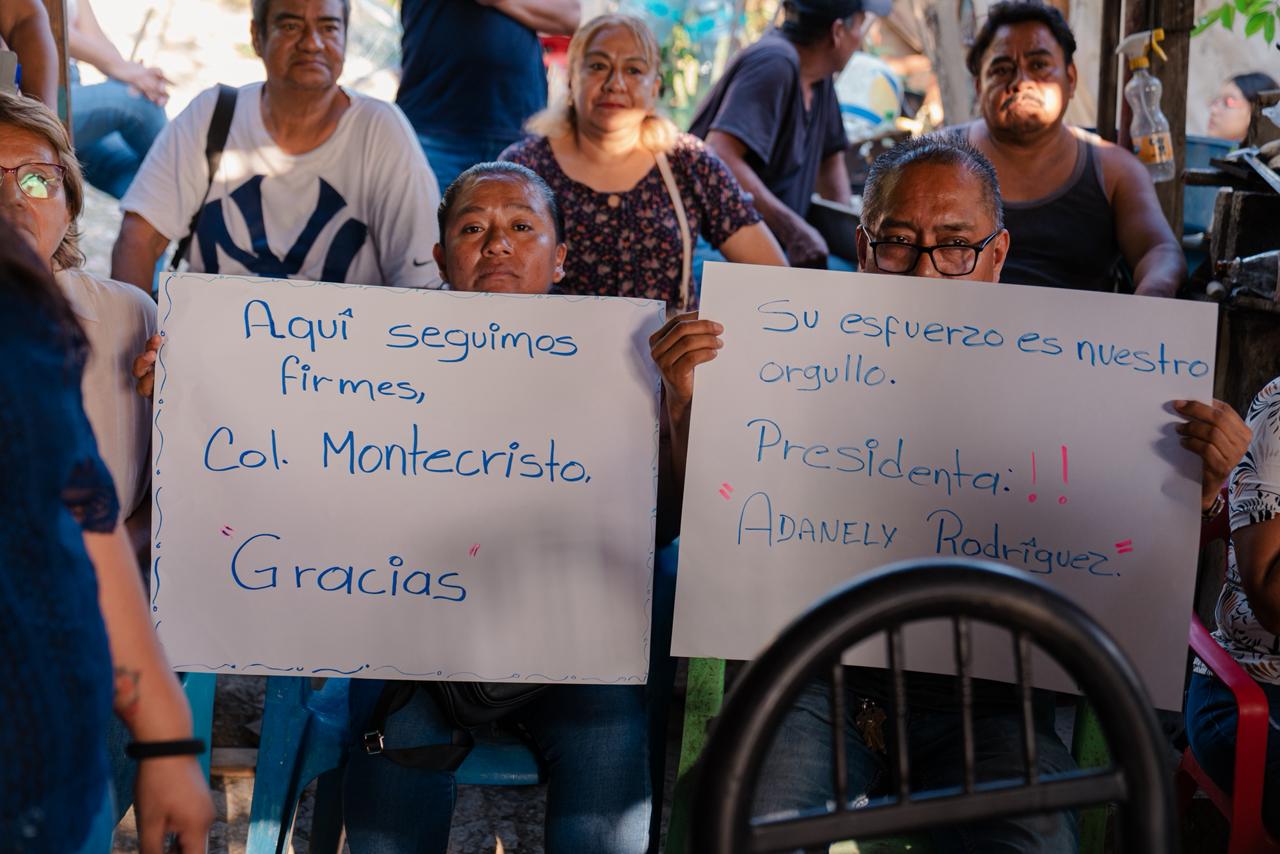 Aquí seguimos
firmes,
Col. Montecristo.
"Gracias"
Su esfuerzo es nuestro
orgullo.
Presidenta: !!
"ADANELY Rodríguez".
NY